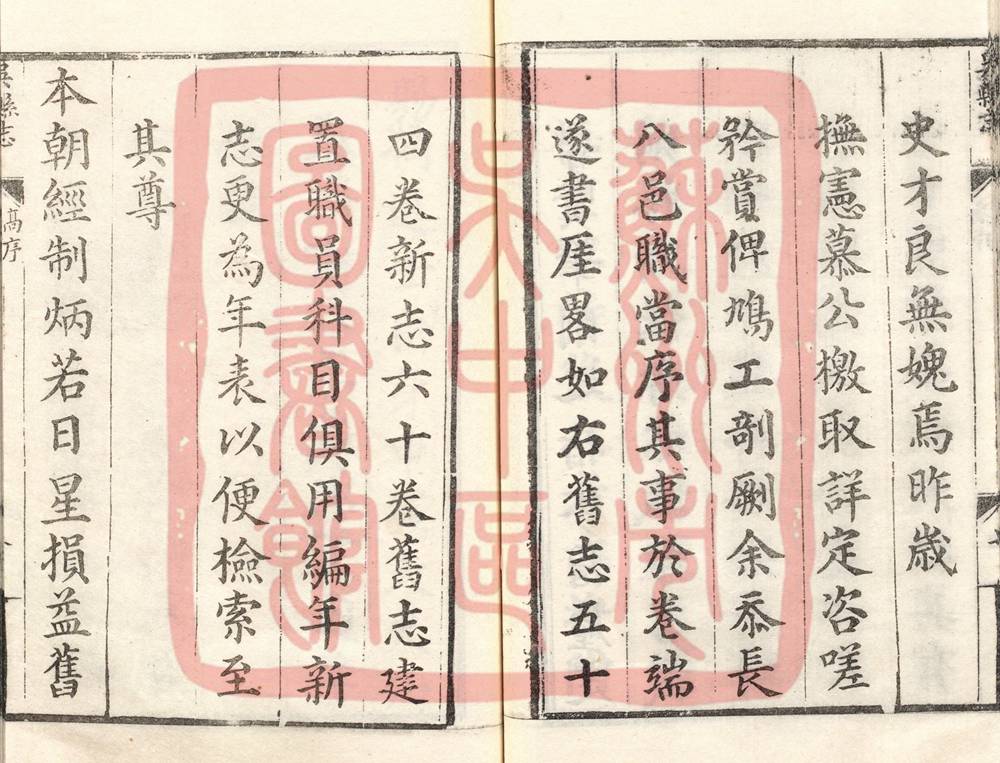 史才良無媿焉昨歲
撫憲慕公檄取詳定咨嗟
矜賞俾鳩工剞劂余忝長
八邑職當序其事於卷端
遂書厓畧如右舊志五十
四卷新志六十卷舊志建
置職員科目俱用編年新
志更為年表以便檢索至
其尊
本朝經制炳若日星損益舊
吳縣志
高序
蘇州市
吳中區
圖書館